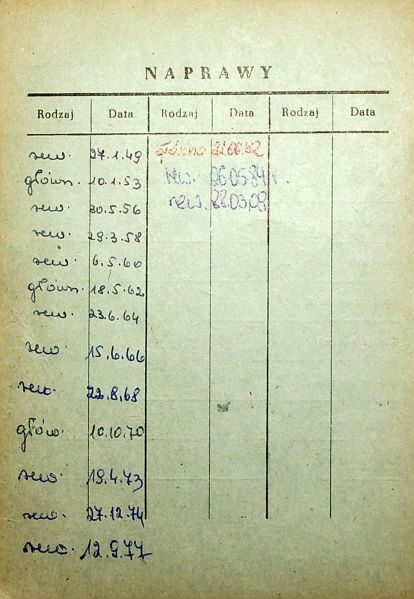 NAPRAWY
Rodzaj Data Rodzaj Data Rodzaj Data
rew. 27.1.49 główna 21.06.82
główn. 10.1.53 rew. 06.05.84 r.
rew. 30.5.56 rew.
rew. 29.3.58
rew. 6.5.60
główn. 18.5.62
rew. 23.6.64
rew. 15.6.66
rew. 22.8.68
głów. 10.10.70
rew. 19.4.73
rew. 27.12.74
rew. 12.9.77